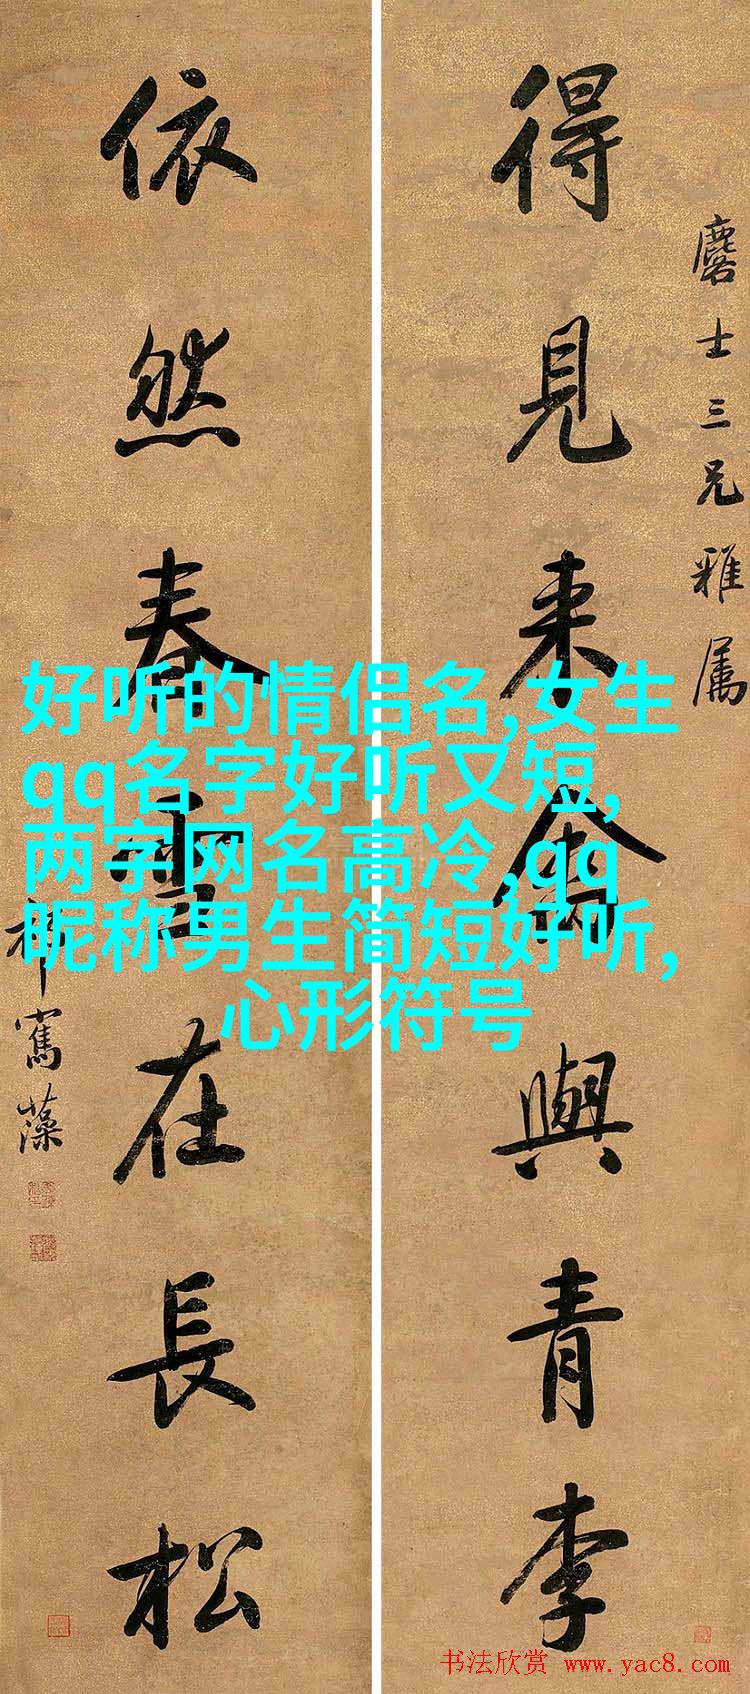 麐士三兄雅属
得見来禽與青李
依然春雪在長松
祁寯藻
好听的情侣名,女生
qq名字好听又短,
两字网名高冷,qq
昵称男生简短好听,
心形符号
书法欣赏 www.yac8.com